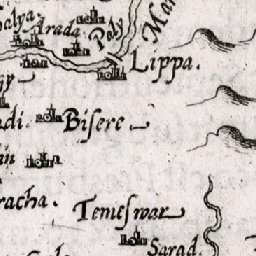 alya
Arada
Poly
Mar
Lippa.
di.
Bisere
racha.
Temeswar
Sarad.